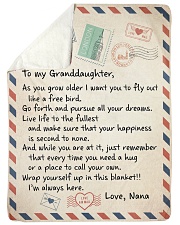 To my Granddaughter,
As you grow older I want you to fly out
like a free bird,
Go forth and pursue all your dreams.
Live life to the fullest
and make sure that your happiness
is second to none.
And while you are at it, just remember
that every time you need a hug
or a place to call your own.
Wrap yourself up in this blanket!!
I'm always here.
Love, Nana